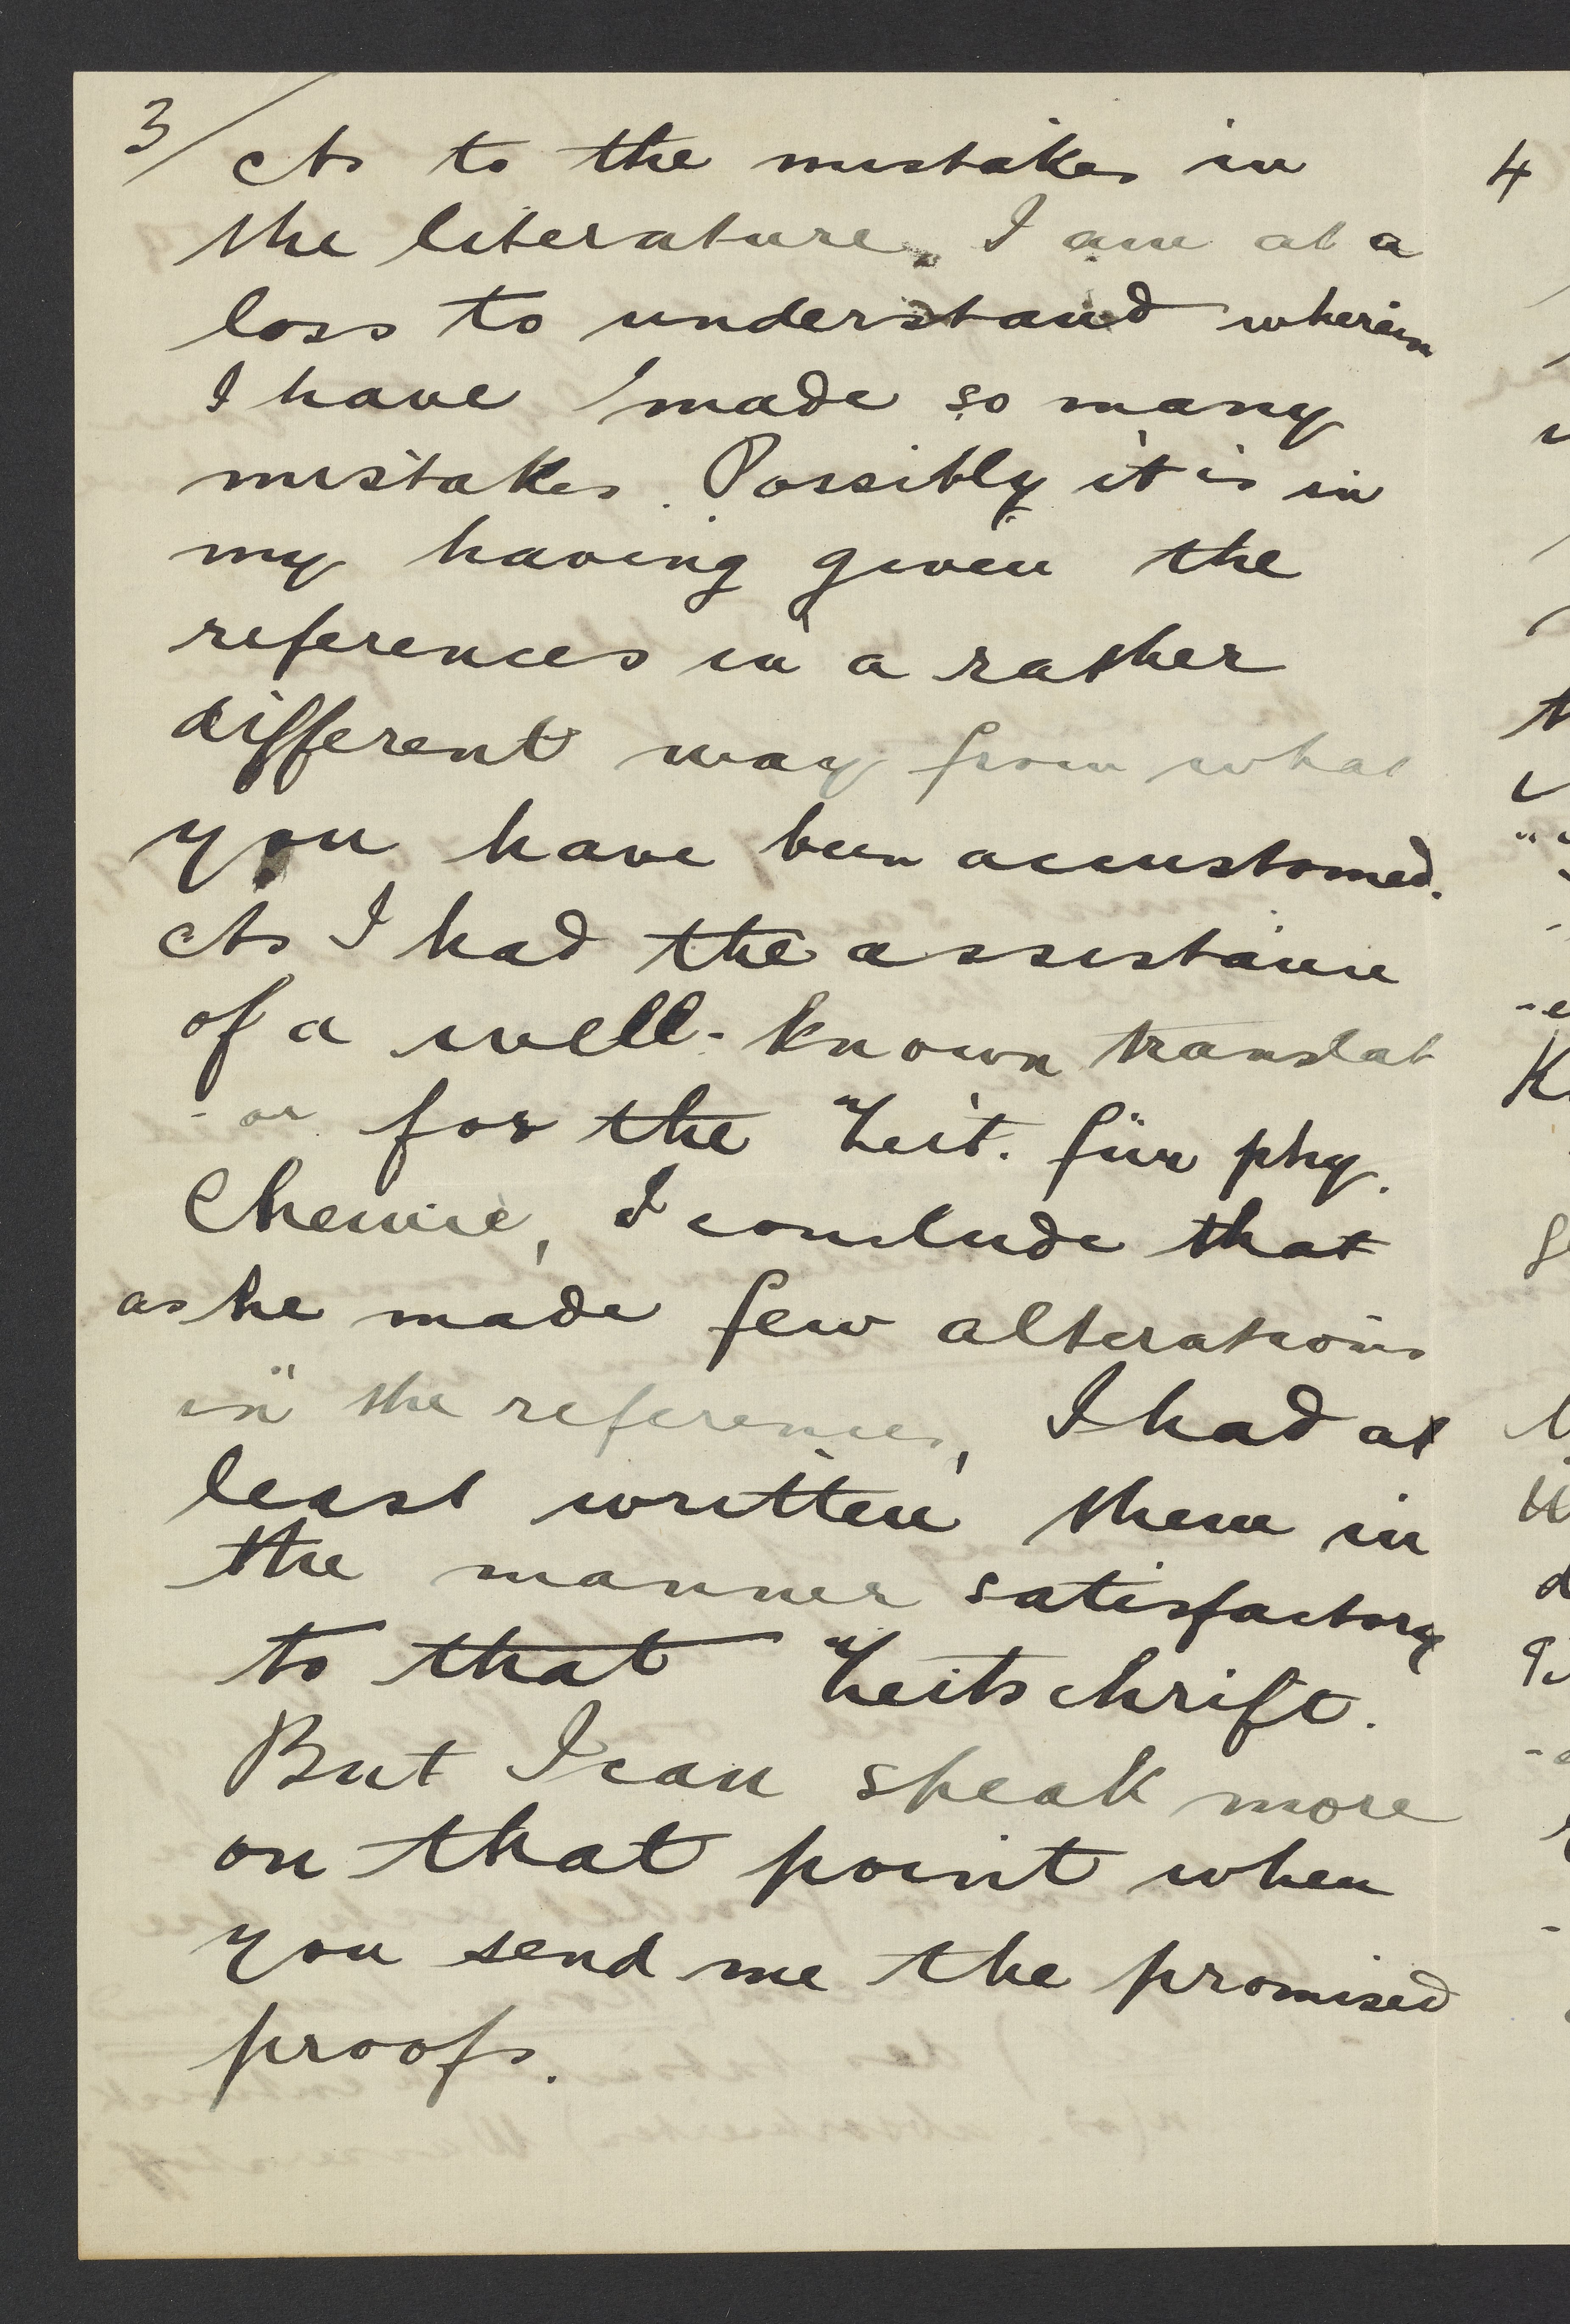 3/ As to the mistakes in
the literature, I am at a
loss to understand wherein
I have made so many
mistakes. Possibly it is in
my having given the
references in a rather
different way from what
you have been accustomed.
As I had the assistance
of a well-known translat
-or for the Zeit. für phy.
Chemie, I conclude that
as he made few alterations
in the references, I had at
least written them in
the manner satisfactory
to that Zeitschrift.
But I can speak more
on that point when
you send me the promised
proofs.
4